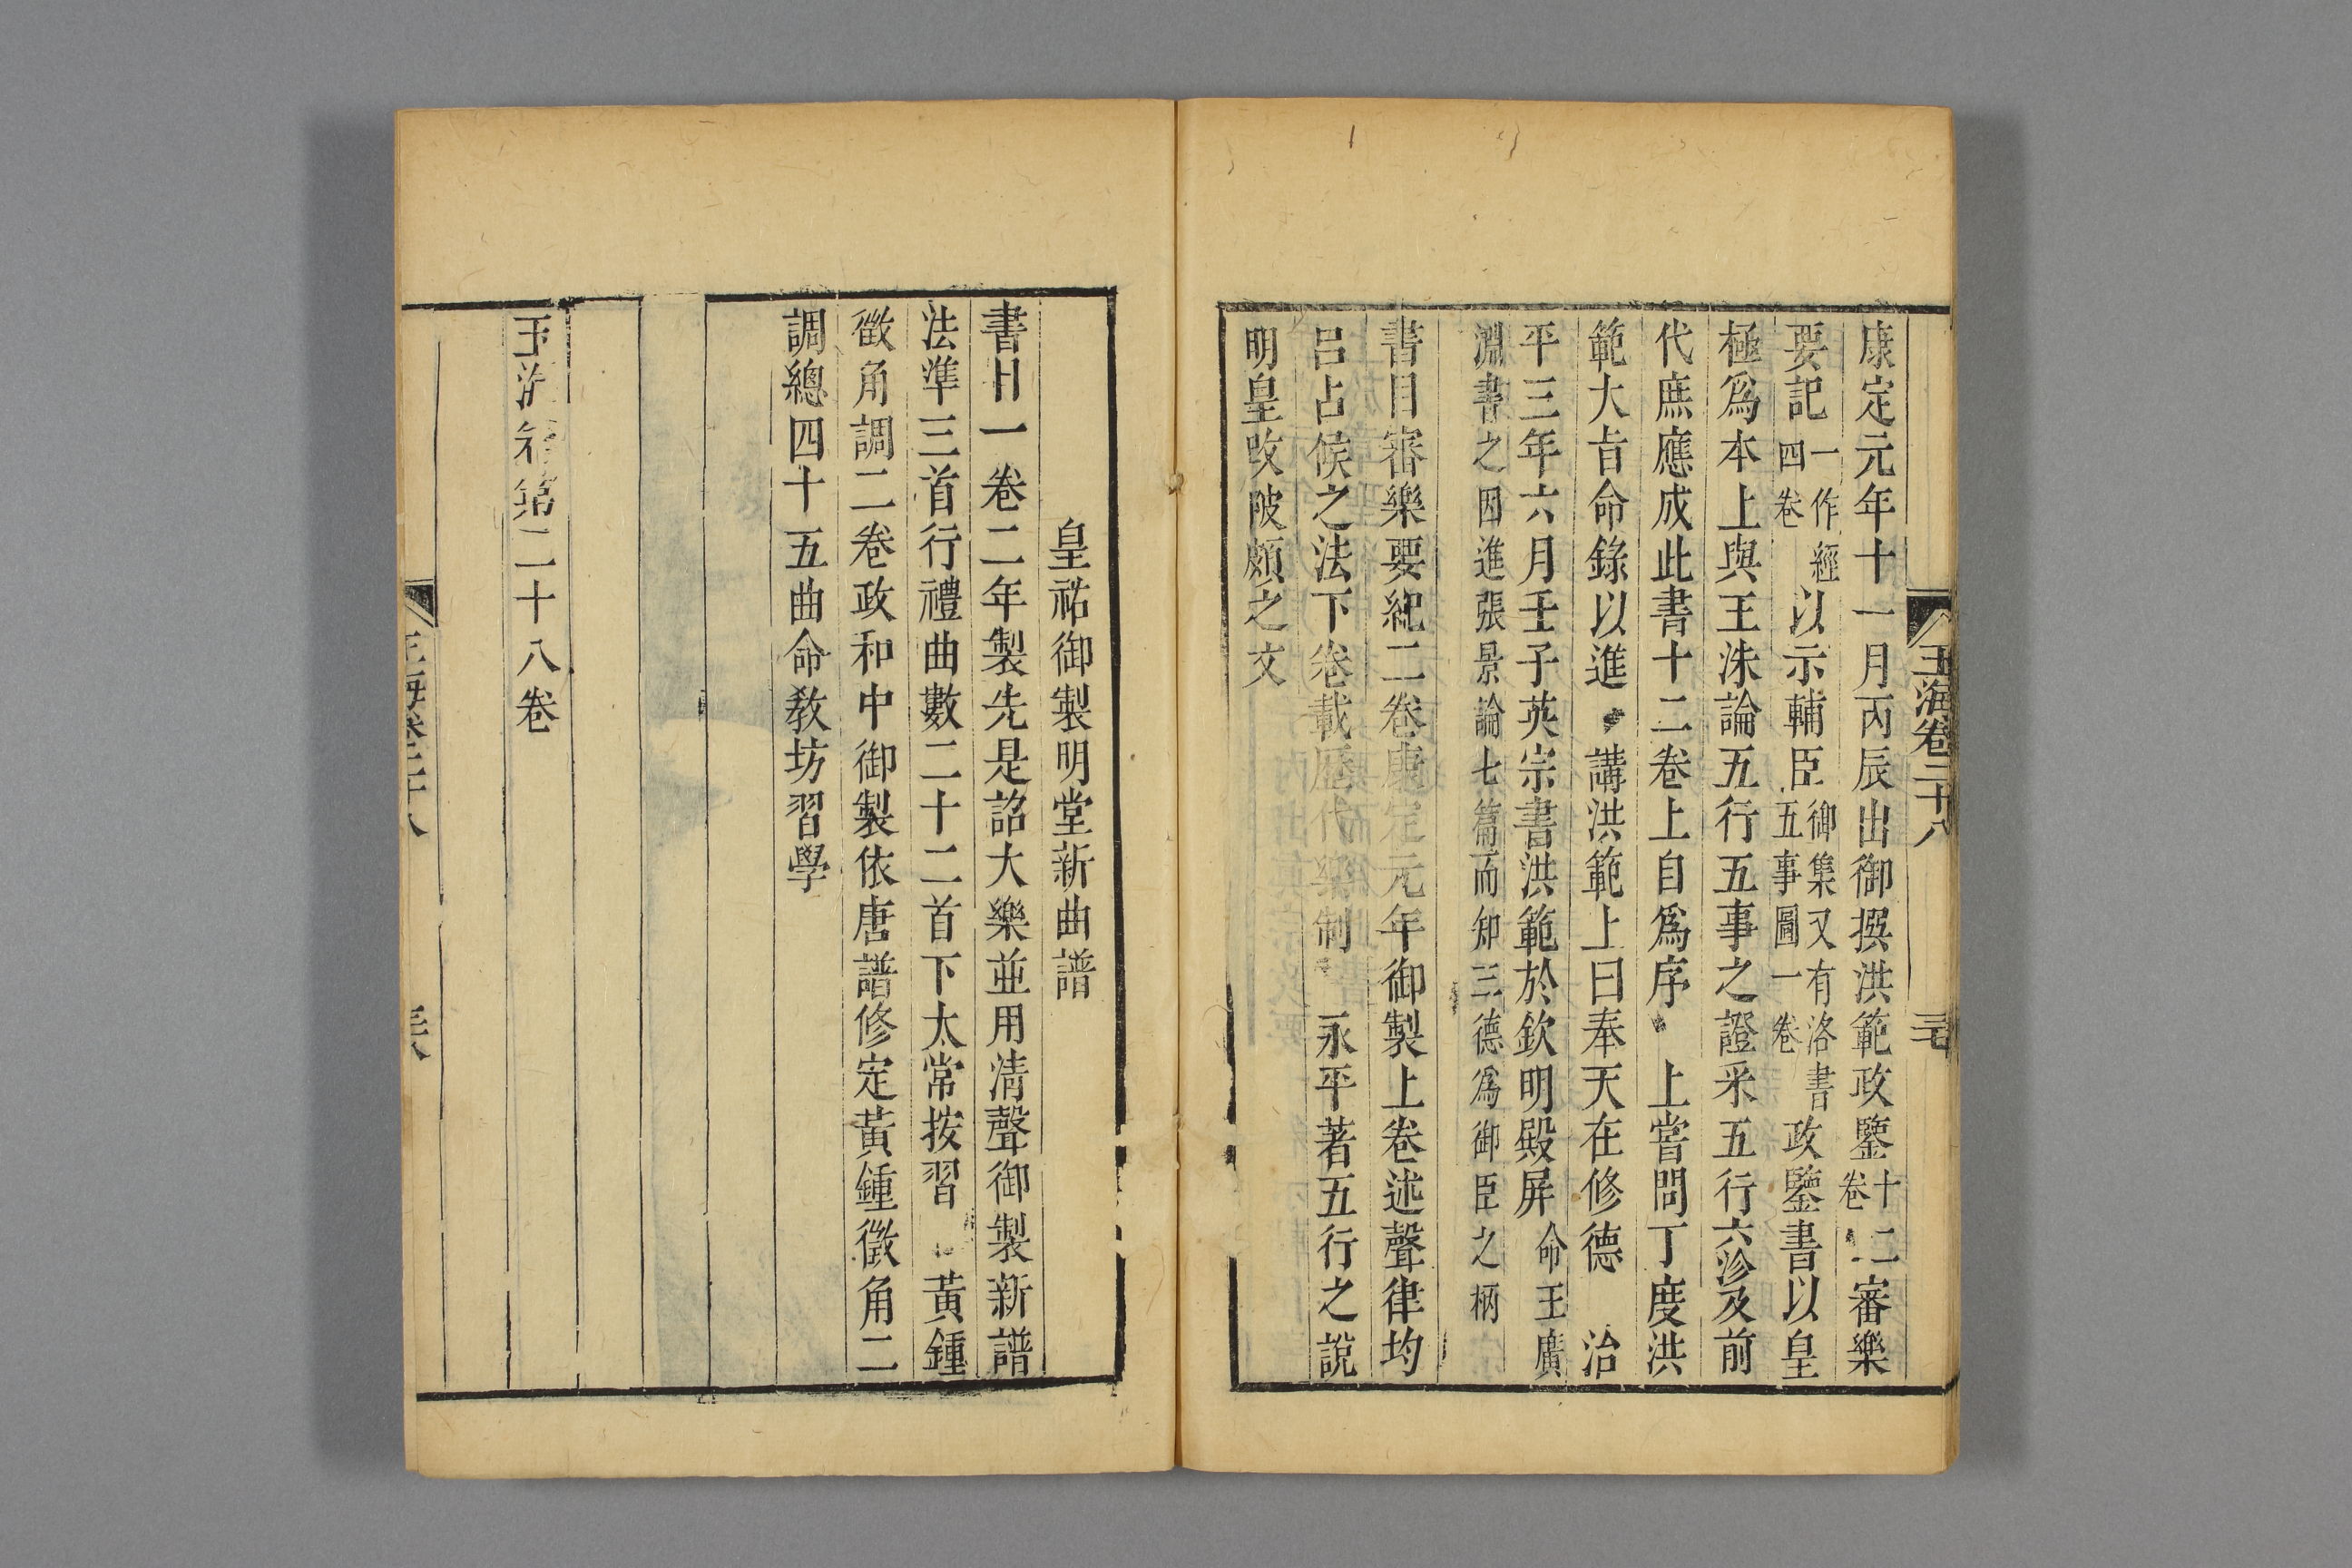 玉海卷二十八
康定元年十一月丙辰出御撰洪範政鑒十二卷審樂
要記一作經四卷以示輔臣御集又有洛書五事圖一卷政鑒書以皇
極爲本上與王洙論五行五事之證采五行六沴及前
代庶應成此書十二卷上自爲序 上嘗問丁度洪
範大旨命錄以進 講洪範上曰奉天在修德 治
平三年六月壬子英宗書洪範於欽明殿屏命王廣
淵書之因進張景論七篇而知三德爲御臣之柄
書目審樂要紀二卷康定元年御製上卷述聲律均
呂占候之法下卷載歷代樂制 永平著五行之說
明皇改陂頗之文
皇祐御製明堂新曲譜
書目一卷二年製先是詔大樂並用清聲御製新譜
法準三首行禮曲數二十二首下太常按習 黃鍾
徵角調二卷政和中御製依唐譜修定黃鍾徵角二
調總四十五曲命教坊習學
玉海卷第二十八卷
玉海卷二十八